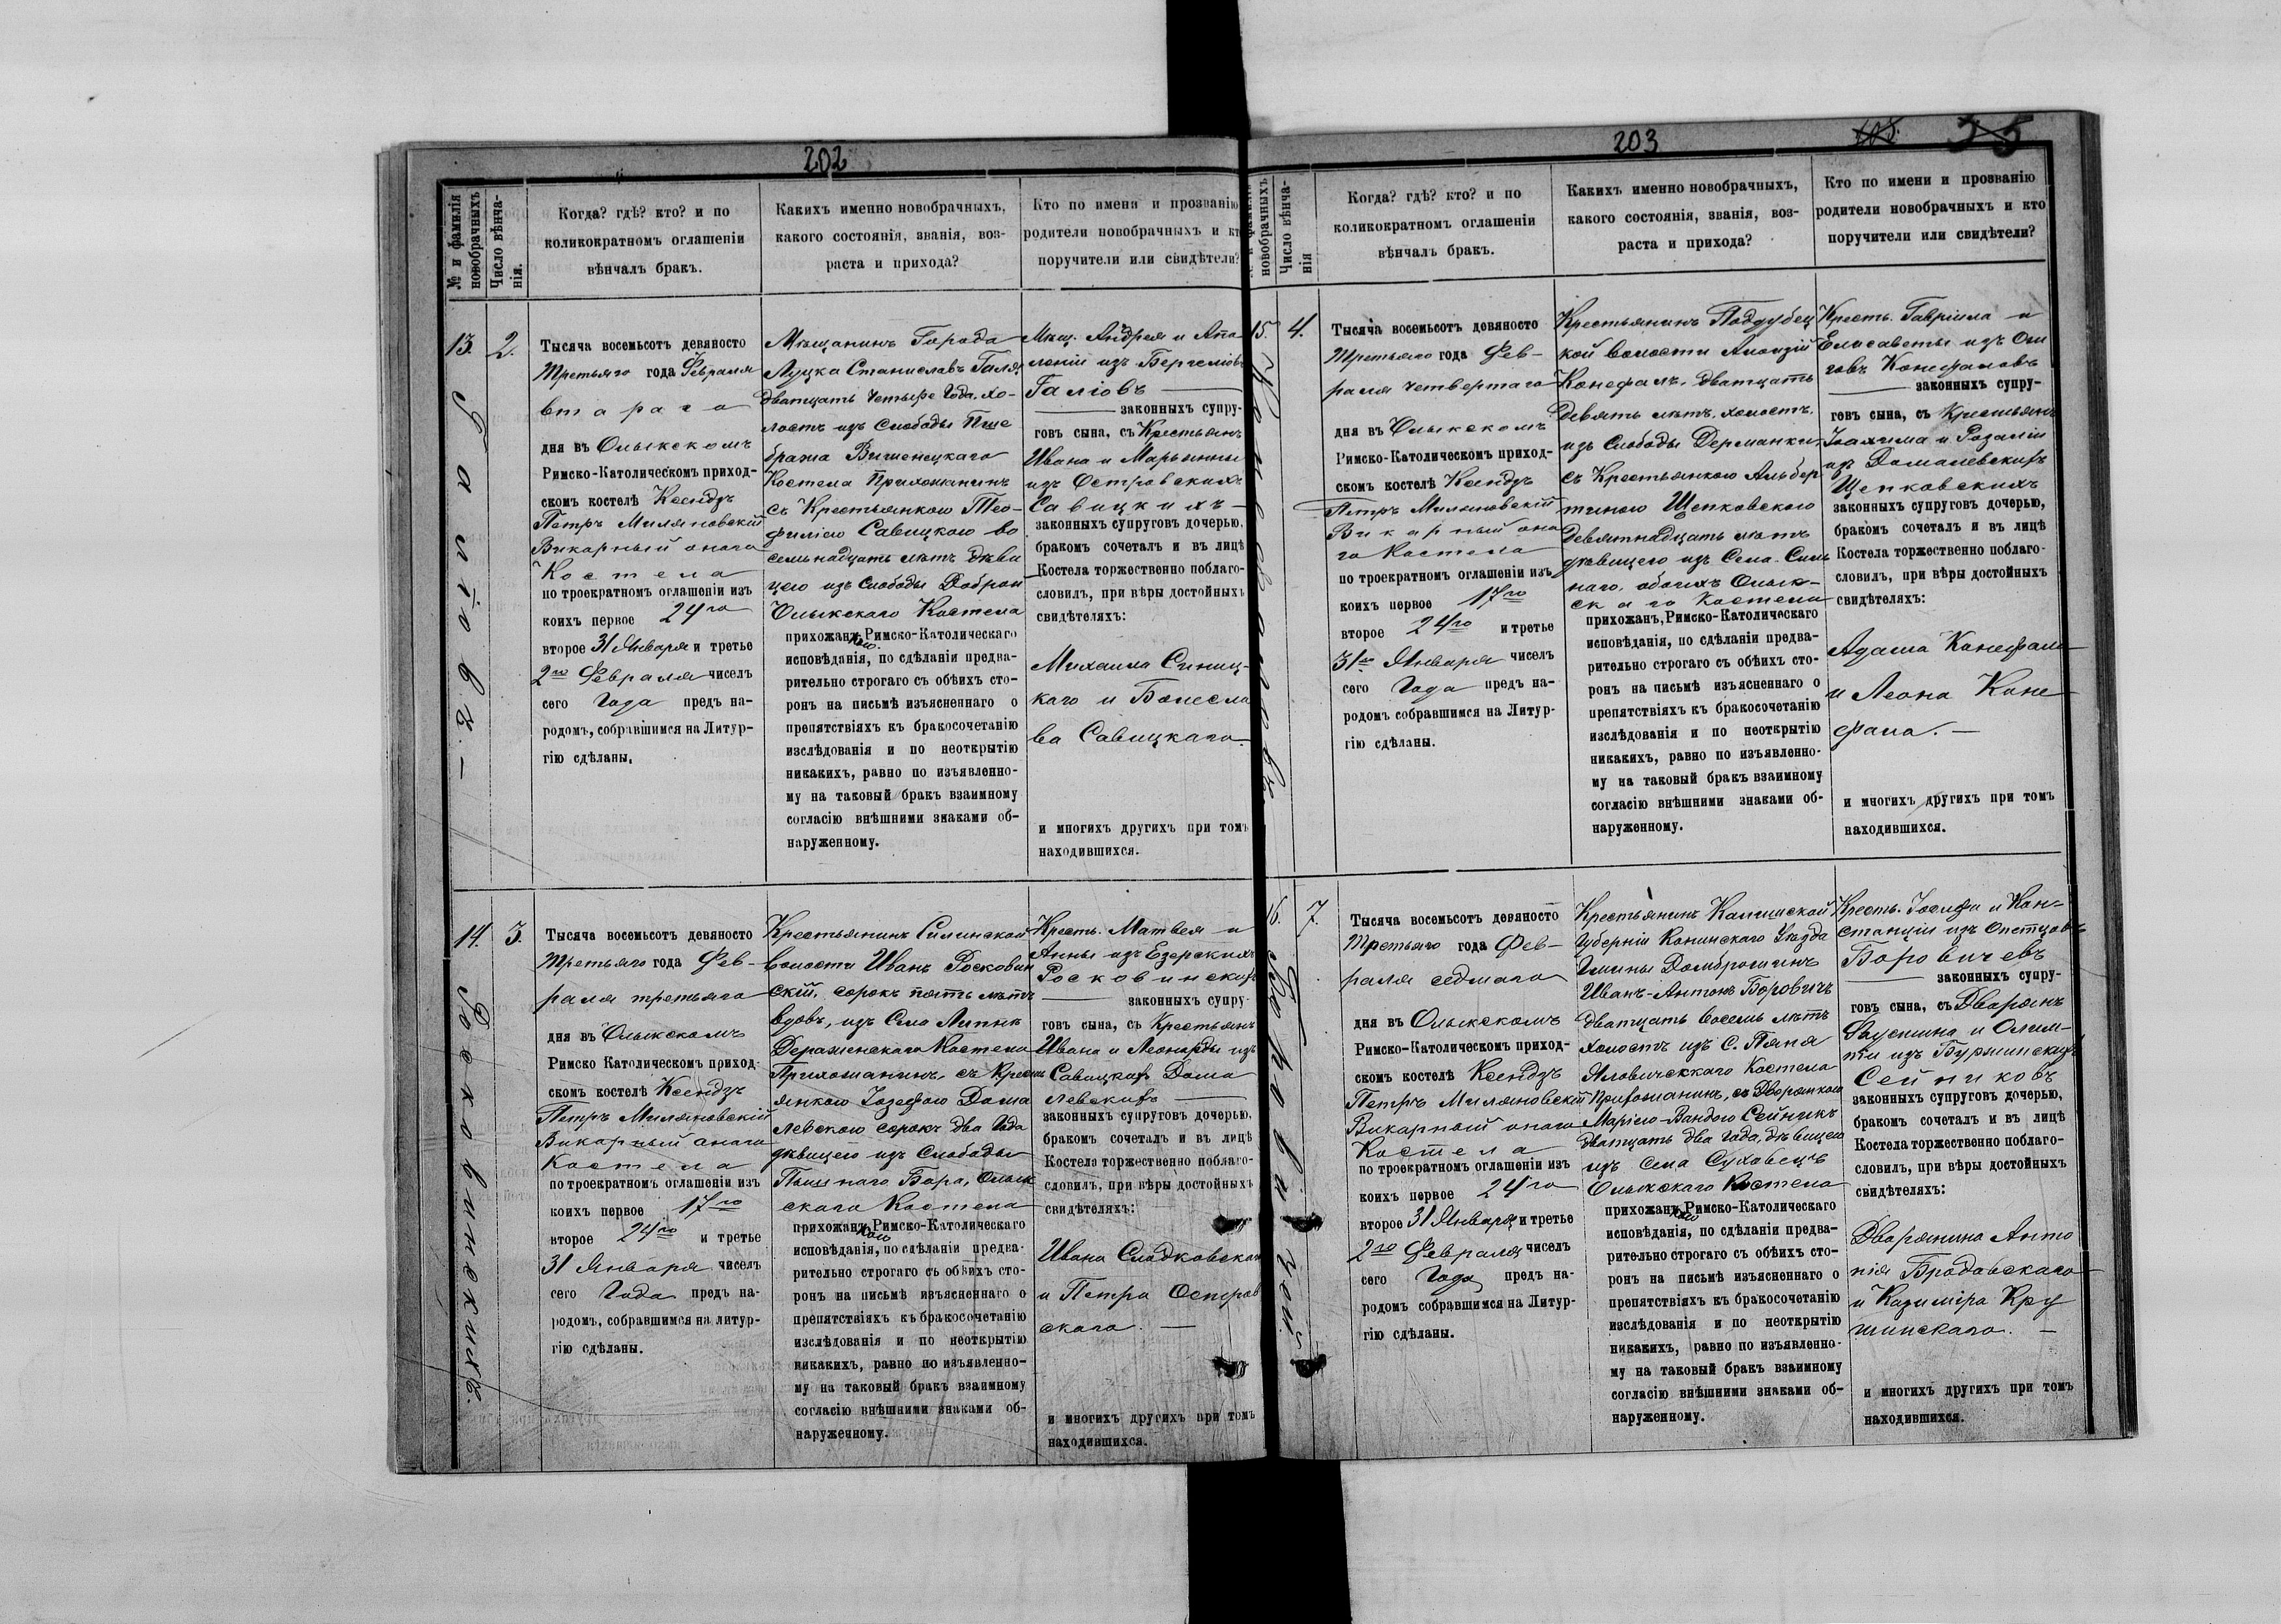 202
№ и фамилія новобрачныхъ
Число вѣнча-
нія.
Когда? гдѣ? кто? и по
коликократномъ оглашеніи
вѣнчалъ бракъ.
Какихъ именно новобрачныхъ,
какого состоянія, званія, воз-
раста и прихода?
Кто по имени и прозванію
родители новобрачныхъ и кт
поручители или свидѣтели?
13.
2.
Галіовъ —
Тысяча восемьсотъ девяносто
Третьяго года Февраля
втараго
дня въ Олыкскомъ
Римско-Католическомъ приход-
скомъ костелѣ Ксендзъ
Петръ Миляновскій
Викарный онаго
Костела
по троекратномъ оглашеніи изъ
коихъ первое 24го
второе 31 Января и третье
2го Февраля чиселъ
сего Года предъ на-
родомъ, собравшимся на Литур-
гію сдѣланы.
Мѣщанинъ Города
Луцка Станиславъ Галя,
дватцать четыре Года, хо-
лостъ изъ Слободы Пше
бража Вишенецкаго
Костела Прихожанинъ
съ Крестьянкою Тео-
филіею Савицкою во
семьнадцать лѣтъ дѣви
цею изъ Слободы
Олыкскаго Костела
прихожан Римско-Католическаго
исповѣданія, по сдѣланіи предва-
рительно строгаго съ обѣихъ сто-
ронъ на письмѣ изъясненнаго о
препятствіяхъ къ бракосочетанію
изслѣдованія и по неоткрытію
никакихъ, равно по изъявленно-
му на таковый бракъ взаимному
согласію внѣшними знаками об-
наруженному.
Мѣщ. Андрея и Апо-
лоніи изъ
Галіовъ —
законныхъ супру-
говъ сына, съ Крестьянъ
Ивана и Марьянны
изъ Островскихъ
Савицкихъ —
законныхъ супруговъ дочерью,
бракомъ сочеталъ и въ лицѣ
Костела торжественно поблаго-
словилъ, при вѣры достойныхъ
свидѣтеляхъ:
Михаила Синиц-
каго и Болесла
ва Савицкаго.
и многихъ другихъ при томъ
находившихся.
14.
3.
Росковинскихъ.
Тысяча восемьсотъ девяносто
Третьяго года Фев-
раля третьяго
дня въ Олыкскомъ
Римско Католическомъ приход-
скомъ костелѣ Ксендзъ
Петръ Миляновскій
Викарный онаго
Костела
по троекратномъ оглашеніи изъ
коихъ первое 17го
второе 24го и третье
31 Января чиселъ
сего Года предъ на-
родомъ, собравшимся на литур-
гію сдѣланы.
Крестьянинъ Силинской
волости Иванъ Росковин
скій, сорокъ пять лѣтъ
вдовъ, изъ Села Липнѣ
Деражненскаго Костела
Прихожанинъ, съ Кресть
янкою Іозефою Дома
левскою сорокъ два Года
дѣвицею изъ Слободы
Пышнаго Бора, Олык
скаго Костела
прихожан Римско-Католическаго
исповѣданія, по сдѣланіи предва-
рительно строгаго съ обѣихъ сто-
ронъ на письмѣ изъясненнаго о
препятствіяхъ къ бракосочетанію
изслѣдованія и по неоткрытію
никакихъ, равно по изъявленно-
му на таковый бракъ взаимному
согласію внѣшними знаками об-
наруженному.
Кресть. Матвея и
Анны изъ Езерскихъ
Росковинскихъ
законныхъ супру-
говъ сына, съ Крестьянъ
Ивана и Леонарды изъ
Савицкихъ Дома
левскихъ —
законныхъ супруговъ дочерью,
бракомъ сочеталъ и въ лицѣ
Костела торжественно поблаго-
словилъ, при вѣры достойныхъ
свидѣтеляхъ:
Ивана Сладковскаго
и Петра Остров
скаго. —
и многихъ другихъ при томъ
находившихся.
203
новобрачныхъ
Число вѣнча-
нія
Когда? гдѣ? кто? и по
коликократномъ оглашеніи
вѣнчалъ бракъ.
Какихъ именно новобрачныхъ,
какого состоянія, званія, воз-
раста и прихода?
Кто по имени и прозванію
родители новобрачныхъ и кто
поручители или свидѣтели?
15.
4.
Тысяча восемьсотъ девяносто
Третьяго года Фев-
раля четвертаго
дня въ Олыкскомъ
Римско-Католическомъ приход-
скомъ костелѣ Ксендзъ
Петръ Миляновскій
Викарный она
го Костела
по троекратномъ оглашеніи изъ
коихъ первое 17го
второе 24го и третье
31го Января чиселъ
сего Года предъ на-
родомъ собравшимся на Литур-
гію сдѣланы.
Крестьянинъ Поддубец
кой волости Алоизій
Конефалъ, дватцать
девять лѣтъ, холостъ,
изъ Слободы Дерманки,
съ Крестьянкою Альбер
тиною Щепковскою
девятнадцать лѣтъ
дѣвицею изъ Села Силь
наго, обоихъ Олык-
скаго Костела
прихожанъ, Римско-Католическаго
исповѣданія, по сдѣланіи предва-
рительно строгаго съ обѣихъ сто-
ронъ на письмѣ изъясненнаго о
препятствіяхъ къ бракосочетанію
изслѣдованія и по неоткрытію
никакихъ, равно по изъявленно-
му на таковый бракъ взаимному
согласію внѣшними знаками об-
наруженному.
Кресть. Гавріила и
Елисаветы изъ
Конефаловъ
законныхъ супру-
говъ сына, съ Крестьянъ
Іоахима и Розаліи
изъ Домалевскихъ
Щепковскихъ
законныхъ супруговъ дочерью,
бракомъ сочеталъ и въ лицѣ
Костела торжественно поблаго-
словилъ, при вѣры достойныхъ
свидѣтеляхъ:
Адама Конефала
и Леона Коне
фала. —
и многихъ другихъ при томъ
находившихся.
16.
7.
Тысяча восемьсотъ девяносто
Третьяго года Фев-
раля седмаго
дня въ Олыкскомъ
Римско-Католическомъ приход-
скомъ костелѣ Ксендзъ
Петръ Миляновскій
Викарный онаго
Костела
по троекратномъ оглашеніи изъ
коихъ первое 24го
второе 31 Января и третье
2го Февраля чиселъ
сего Года предъ на-
родомъ собравшимся на Литур-
гію сдѣланы.
Крестьянинъ Калишской
Губерніи Конинскаго Уѣзда
Гмины Домброшинъ
Иванъ-Антонъ Боровичъ
дватцать восемь лѣтъ
холостъ изъ С.
Яловичскаго Костела
Прихожанинъ, съ Дворянкою
Маріею-Вандою Сейникъ
дватцать два Года, дѣвицею
изъ Села Суховецъ
Олыкскаго Костела
прихожан Римско-Католическаго
исповѣданія, по сдѣланіи предва-
рительно строгаго съ обѣихъ сто-
ронъ на письмѣ изъясненнаго о
препятствіяхъ къ бракосочетанію
изслѣдованія и по неоткрытію
никакихъ, равно по изъявленно-
му на таковый бракъ взаимному
согласію внѣшними знаками об-
наруженному.
Кресть. Іосифа и Кон-
станціи изъ
Боровичевъ
законныхъ супру-
говъ сына, съ Дворянъ
Фаустина и Олим-
піи изъ
Сейниковъ
законныхъ супруговъ дочерью,
бракомъ сочеталъ и въ лицѣ
Костела торжественно поблаго-
словилъ, при вѣры достойныхъ
свидѣтеляхъ:
Дворянина Анто
нія Бродовскаго
и Казиміра Кру
шинскаго. —
и многихъ другихъ при томъ
находившихся.